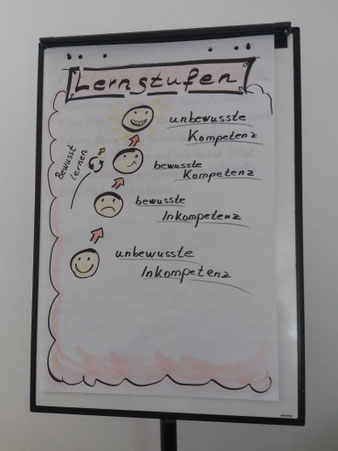 Lernstufen
unbewusste
Kompetenz
Bewusst
lernen
bewusste
Kompetenz
bewusste
Inkompetenz
unbewusste
Inkompetenz